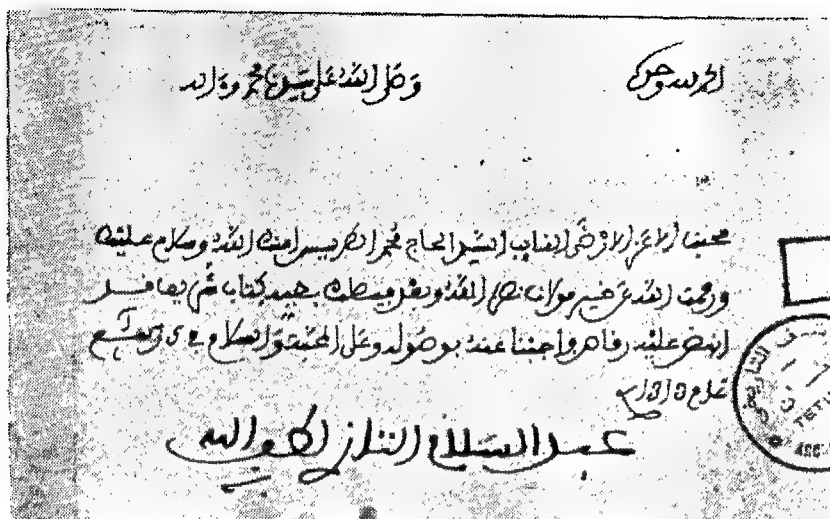 الحمد لله وحده وصلى الله على سيدنا محمد وءاله
محبنا الاعز الارضى النايب السيد الحاج محمد الطريس امنك الله وسلام عليك
ورحمت الله عن خير مولانا نصره الله وبعد فيصلك كتاب شريف
انهض عليه واجبنا عنه بوصوله وعلى المحبة والسلام في
عام
عبد السلام التازي لطف الله به
TETU